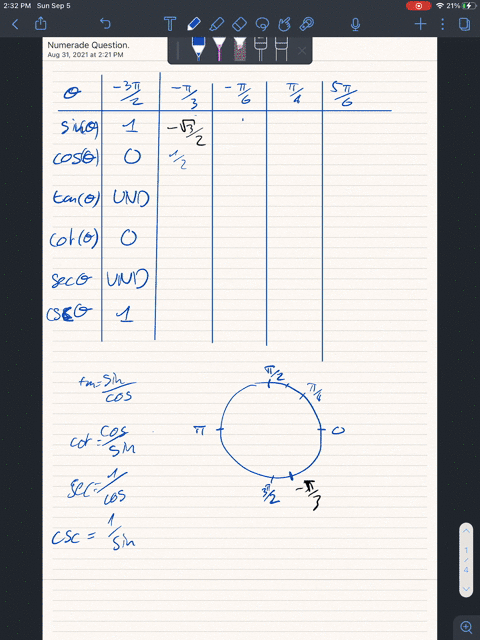 2:32 PM Sun Sep 5
21%
Numerade Question.
Aug 31, 2021 at 2:21 PM
θ -3π/2 -π/3 -π/6 π/4 5π/6
sin(θ) 1 -√3/2
cos(θ) 0 1/2
tan(θ) UND
cot(θ) 0
sec θ UND
csc θ 1
tan = sin/cos
cot = cos/sin
sec = 1/cos
csc = 1/sin
π/2
π/4
π
0
-π/3
1
4